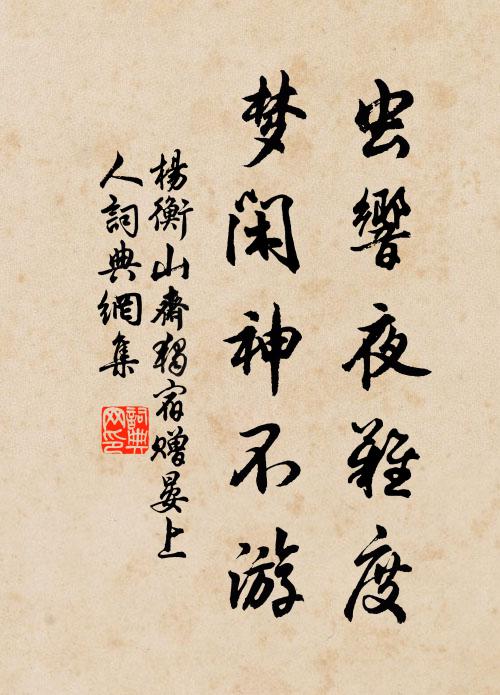 虫響夜難度
梦閑神不游
楊衡山齋獨宿贈晏上
人詞典網集
詞典
网印